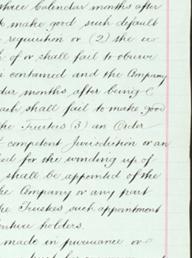 three Calendar months after
to make good such default
requisition or (2) the
of or shall fail to observe
contained and the Company
months after being
such shall fail to make good
the Trustees (3) an Order
competent Jurisdiction or an
for the winding up of
shall be appointed of the
the Company or any part
the Trustees such appointment
holders.
made in pursuance or